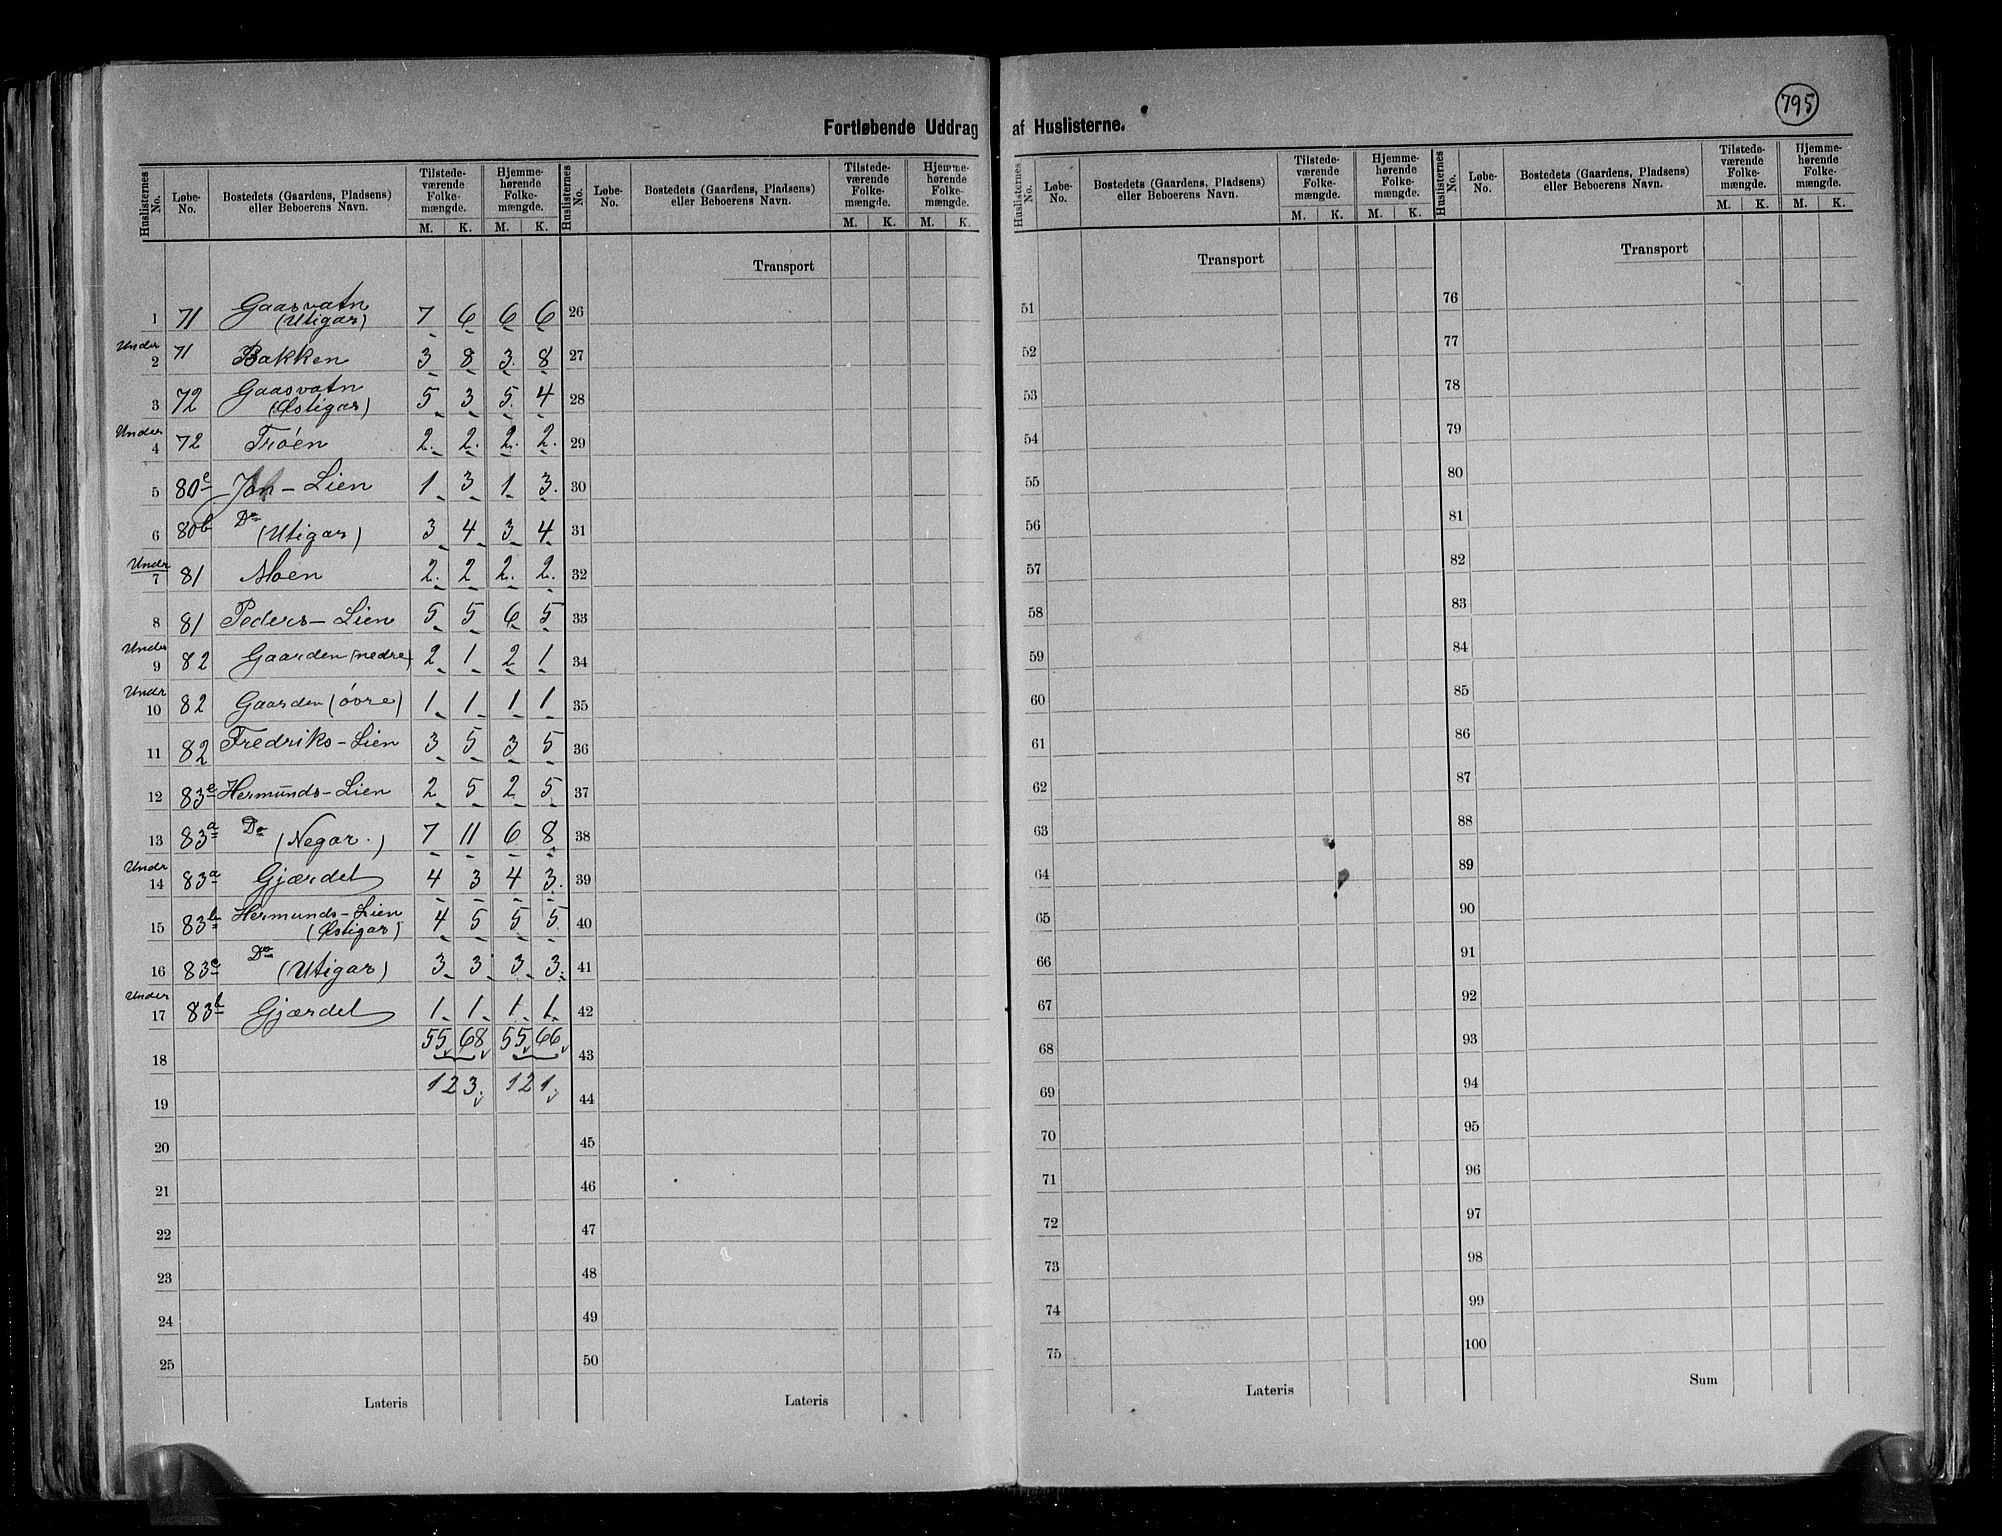 795
Fortløbende Uddrag af Huslisterne.
Huslisternes No. Løbe-No. Bostedets (Gaardens, Pladsens) eller Beboerens Navn. Tilstede-værende Folke-mængde. M. K. Hjemme-hørende Folke-mængde. M. K.
Huslisternes No. Løbe-No. Bostedets (Gaardens, Pladsens) eller Beboerens Navn. Tilstede-værende Folke-mængde. M. K. Hjemme-hørende Folke-mængde. M. K.
Huslisternes No. Løbe-No. Bostedets (Gaardens, Pladsens) eller Beboerens Navn. Tilstede-værende Folke-mængde. M. K. Hjemme-hørende Folke-mængde. M. K.
Huslisternes No. Løbe-No. Bostedets (Gaardens, Pladsens) eller Beboerens Navn. Tilstede-værende Folke-mængde. M. K. Hjemme-hørende Folke-mængde. M. K.
1 71 Gaasvatn (Utigar) 7 6 6 6
Under 2 71 Bakken 3 8 3 8
3 72 Gaasvatn (Østigar) 5 3 5 4
Under 4 72 Trøen 2 2 2 2
5 80c Jon-Lien 1 3 1 3
6 80b Do (Utigar) 3 4 3 4
Undr 7 81 Moen 2 2 2 2
8 81 Peders-Lien 5 5 6 5
Under 9 82 Gaarden (nedre) 2 1 2 1
Undr 10 82 Gaarden (óvre) 1 1 1 1
11 82 Fredriks-Lien 3 5 3 5
12 83e Hermunds-Lien 2 5 2 5
13 83a Do (Negar.) 7 11 6 8
Undr 14 83a Gjærdet 4 3 4 3
15 83b Hermunds-Lien (Østigar) 4 5 5 5
16 83c Do (Utigar) 3 3 3 3
Under 17 83b Gjærdet 1 1 1 1
18 55 68 55 66
19 123 121
20
21
22
23
24
25
Lateris
Transport
26
27
28
29
30
31
32
33
34
35
36
37
38
39
40
41
42
43
44
45
46
47
48
49
50
Lateris
Transport
51
52
53
54
55
56
57
58
59
60
61
62
63
64
65
66
67
68
69
70
71
72
73
74
75
Lateris
Transport
76
77
78
79
80
81
82
83
84
85
86
87
88
89
90
91
92
93
94
95
96
97
98
99
100
Sum